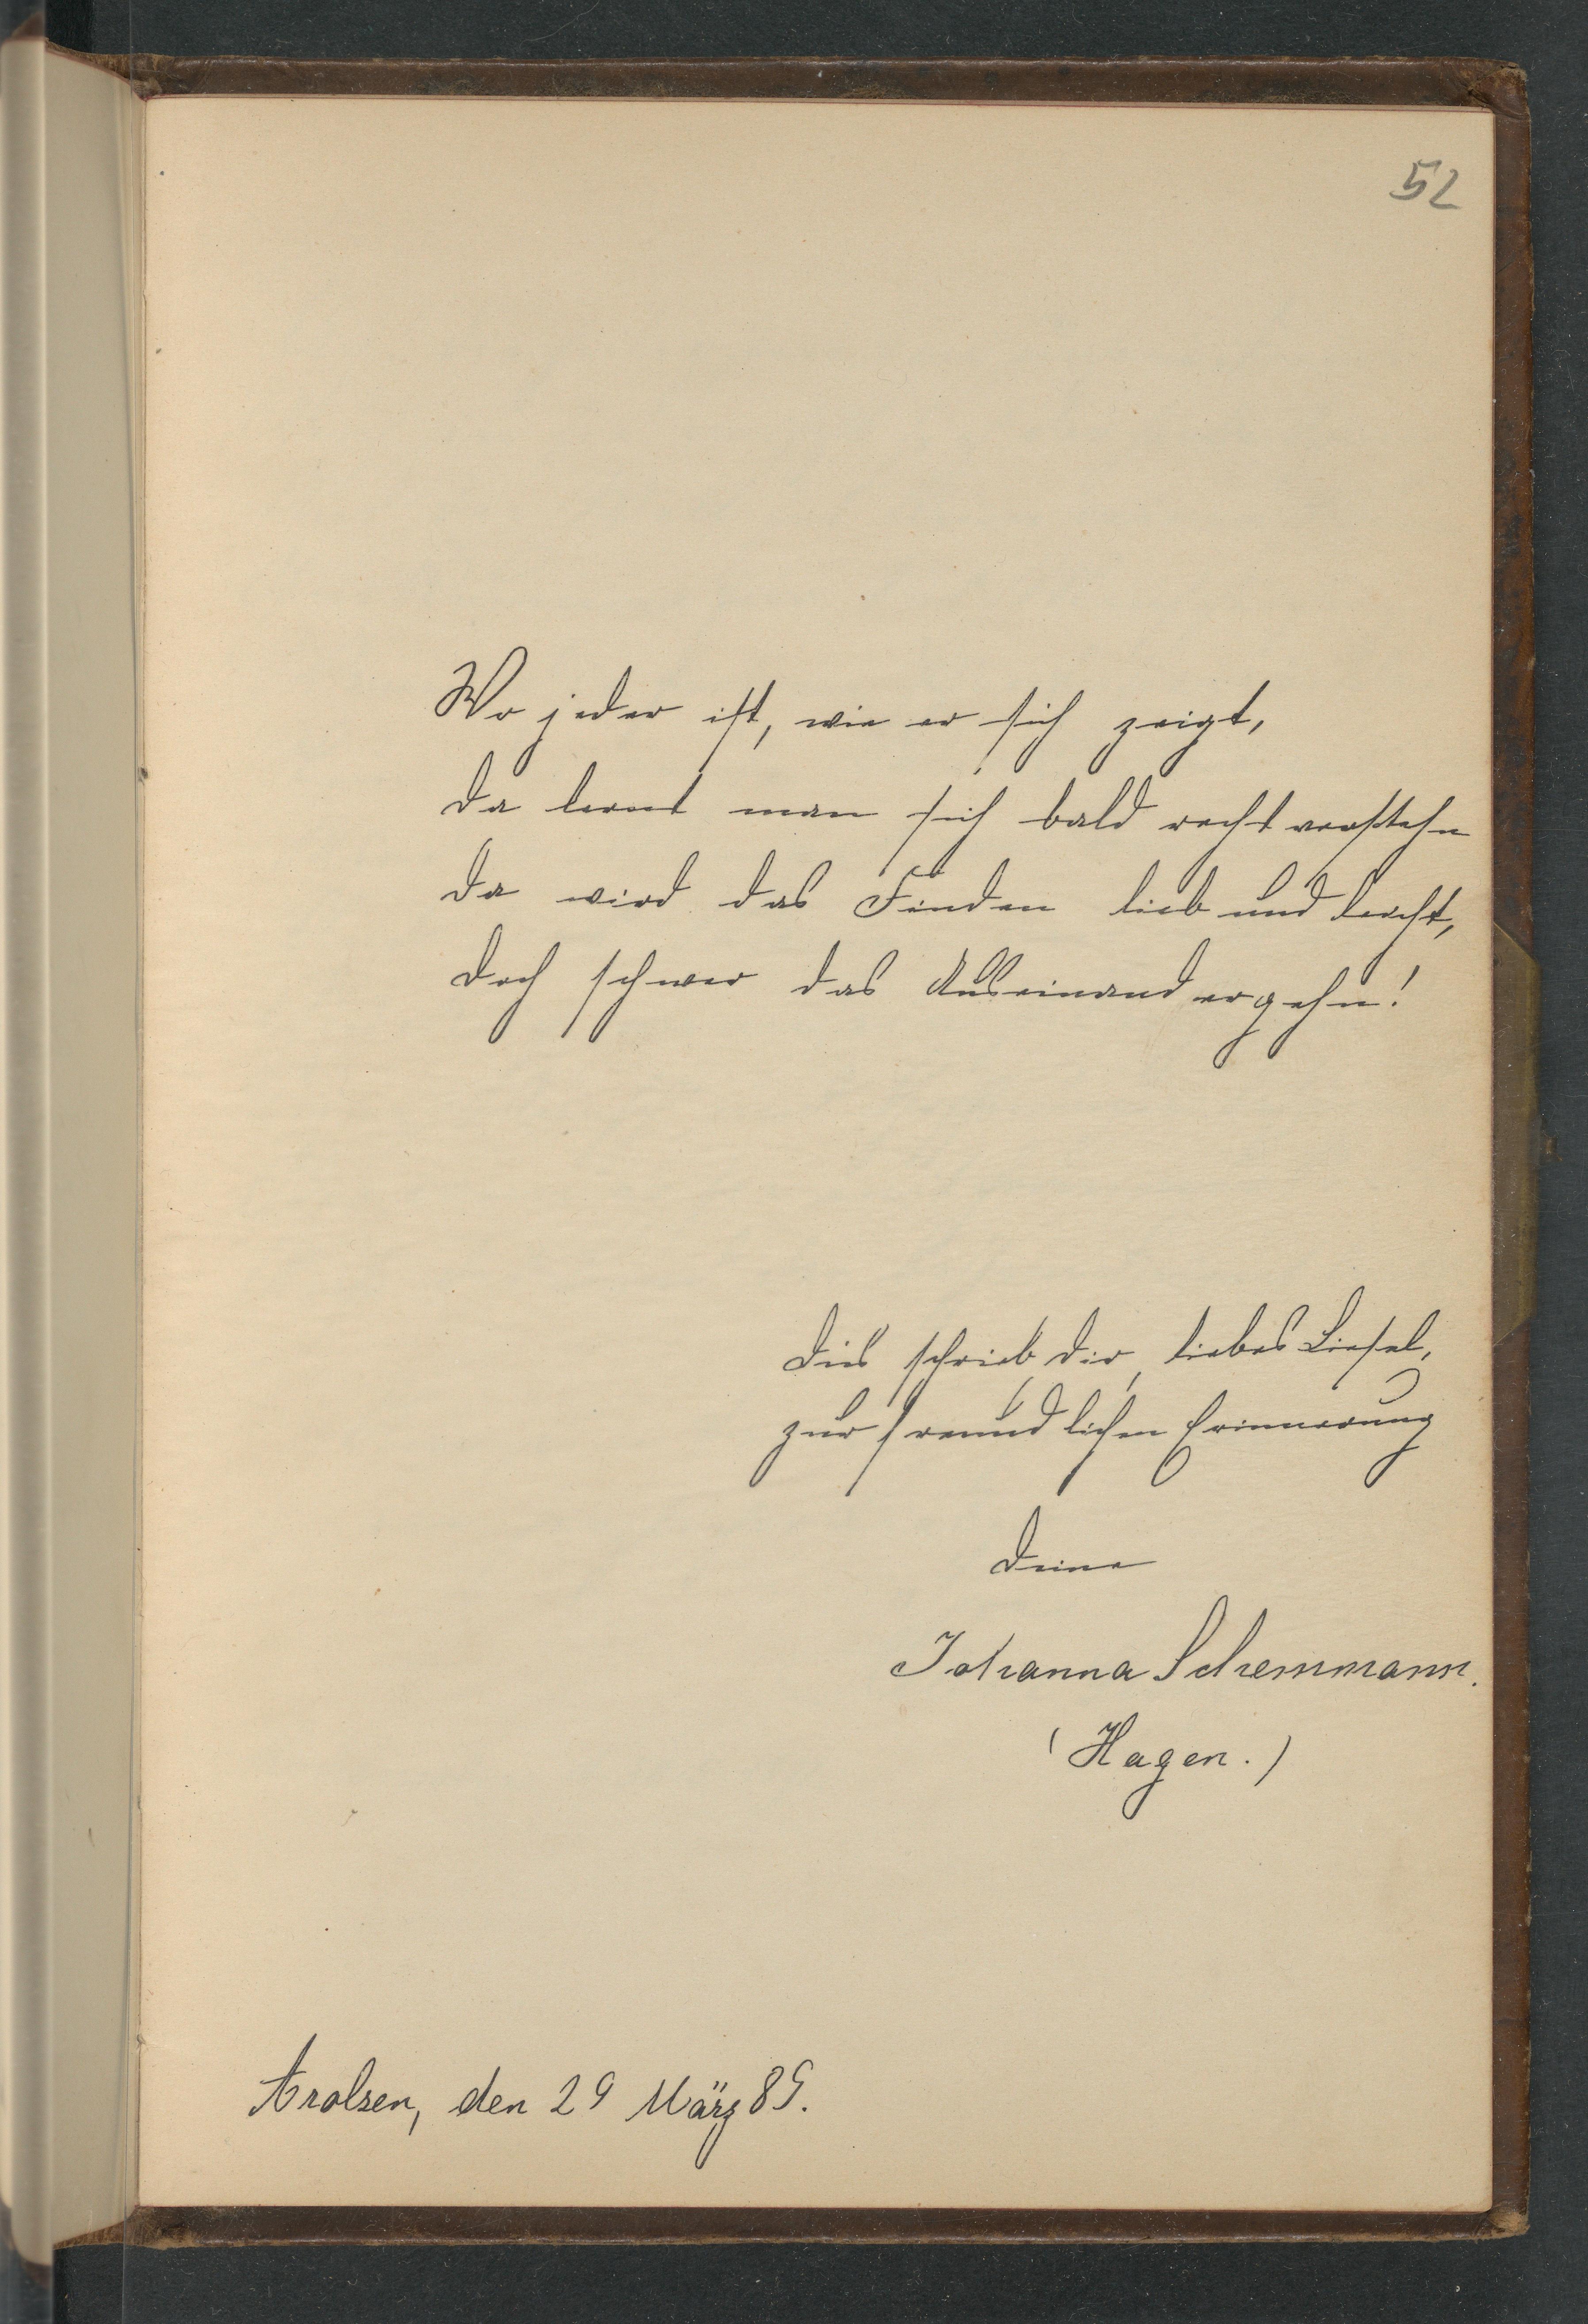 52
Wo jeder ist, wie er sich zeigt,
da lernt man sich bald recht verstehn
da wird das Finden lieb und leicht,
doch schwer das Auseinandergehn!
Dies schrieb dir, liebes Liesel,
zur freundlichen Erinnerung
deine
Johanna Schemmann.
(Hagen.)
Arolsen, den 29 März 89.